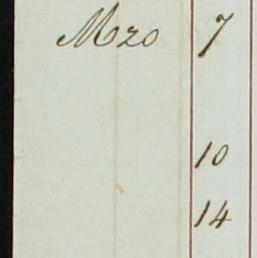 Mzo 7
10
14